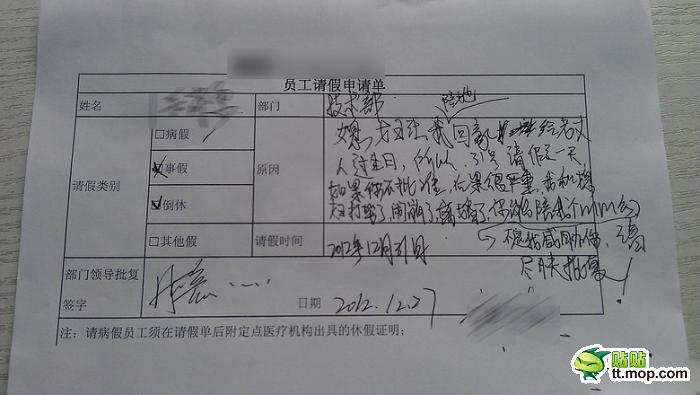 员工请假申请单
姓名 部门 技术部
请假类别
□病假
☑事假
☑倒休
□其他假
原因
陪她
我回家 给老丈
人过生日，所以，31号请假一天，
如果你不批准，后果很严重，我和媳
妇打架了，闹崩了，离婚了，你就得陪我个mm
不是我威胁你，请
尽快批复！
请假时间 2012年12月31日
部门领导批复
签字 日期 2012.12.27
注：请病假员工须在请假单后附定点医疗机构出具的休假证明；
贴贴
tt.mop.com